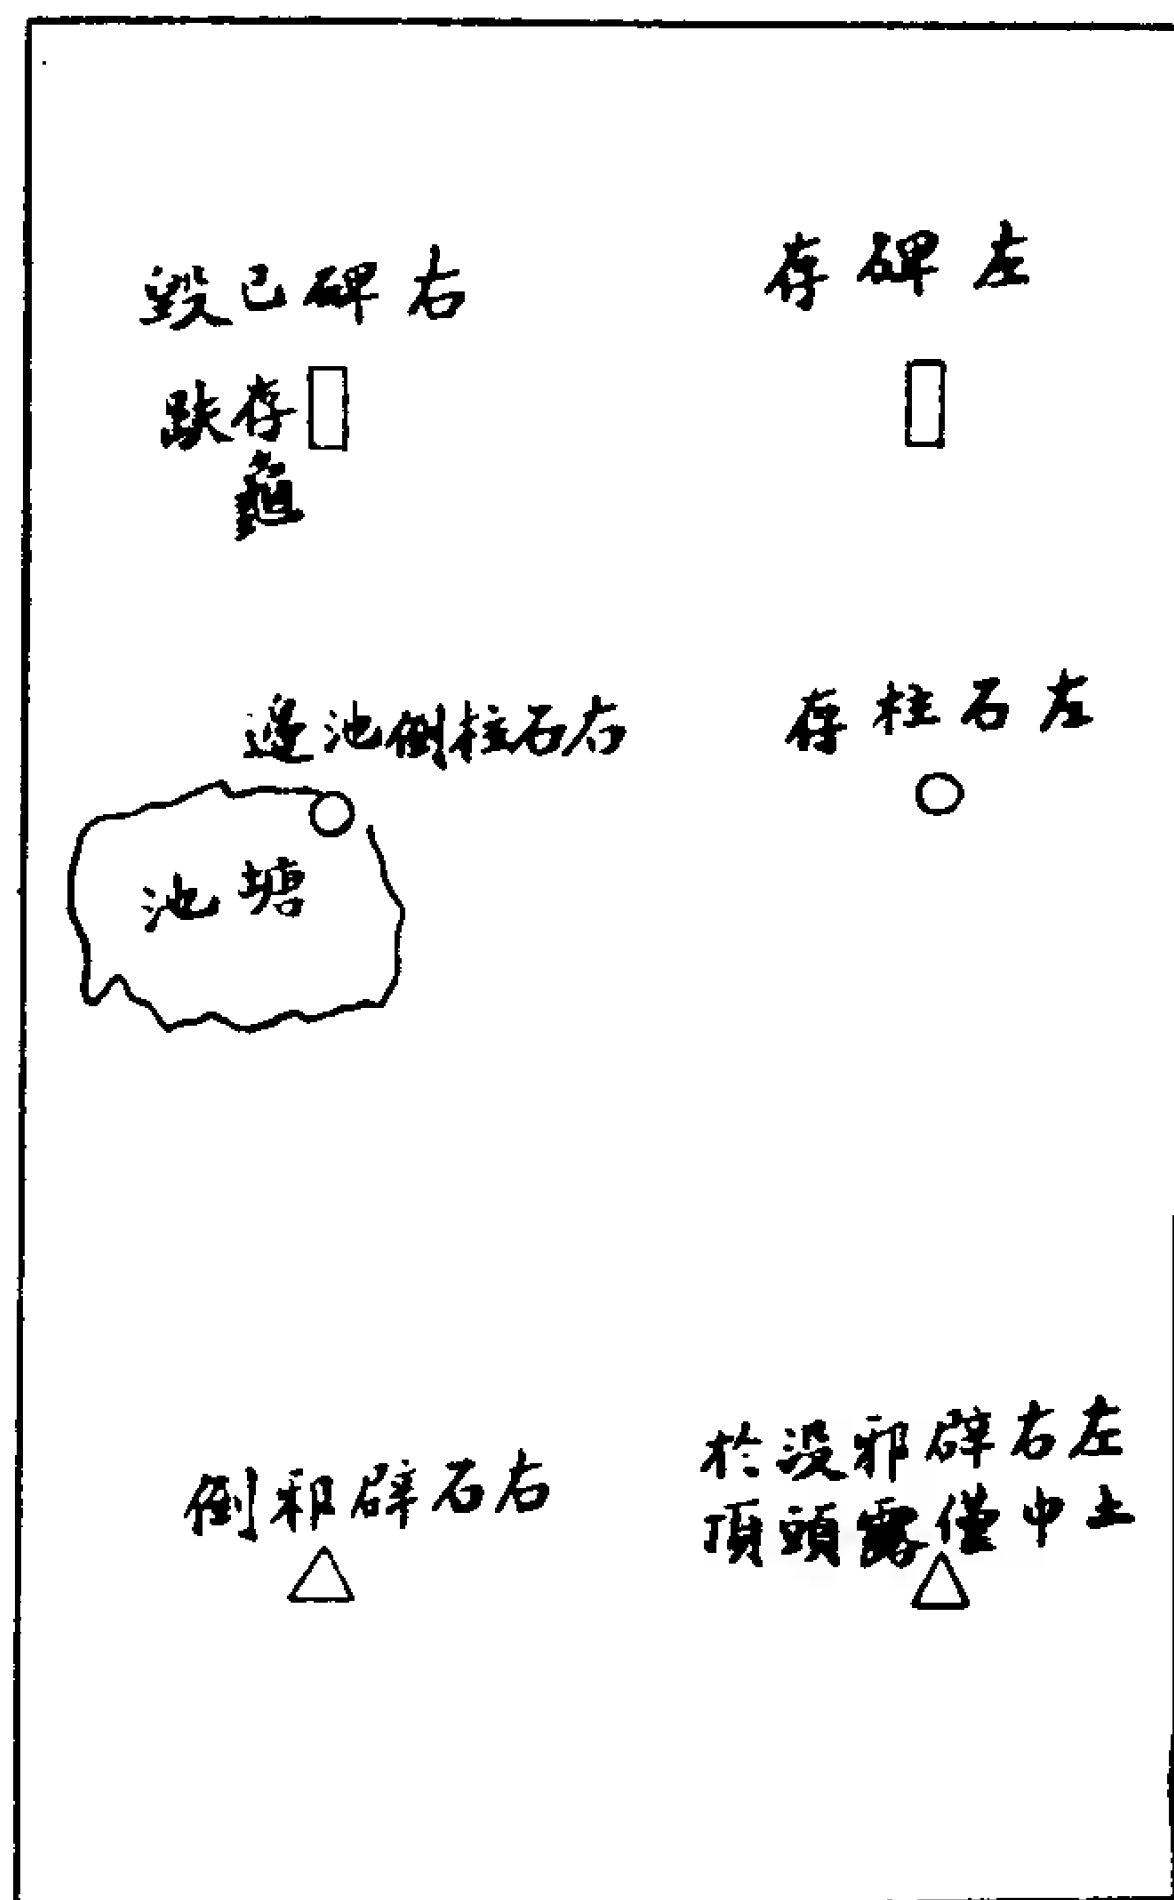 左碑存
右碑已毀
存龜
趺
左石柱存
右石柱倒池邊
池塘
左右辟邪没於
土中僅露頭頂
右石辟邪倒